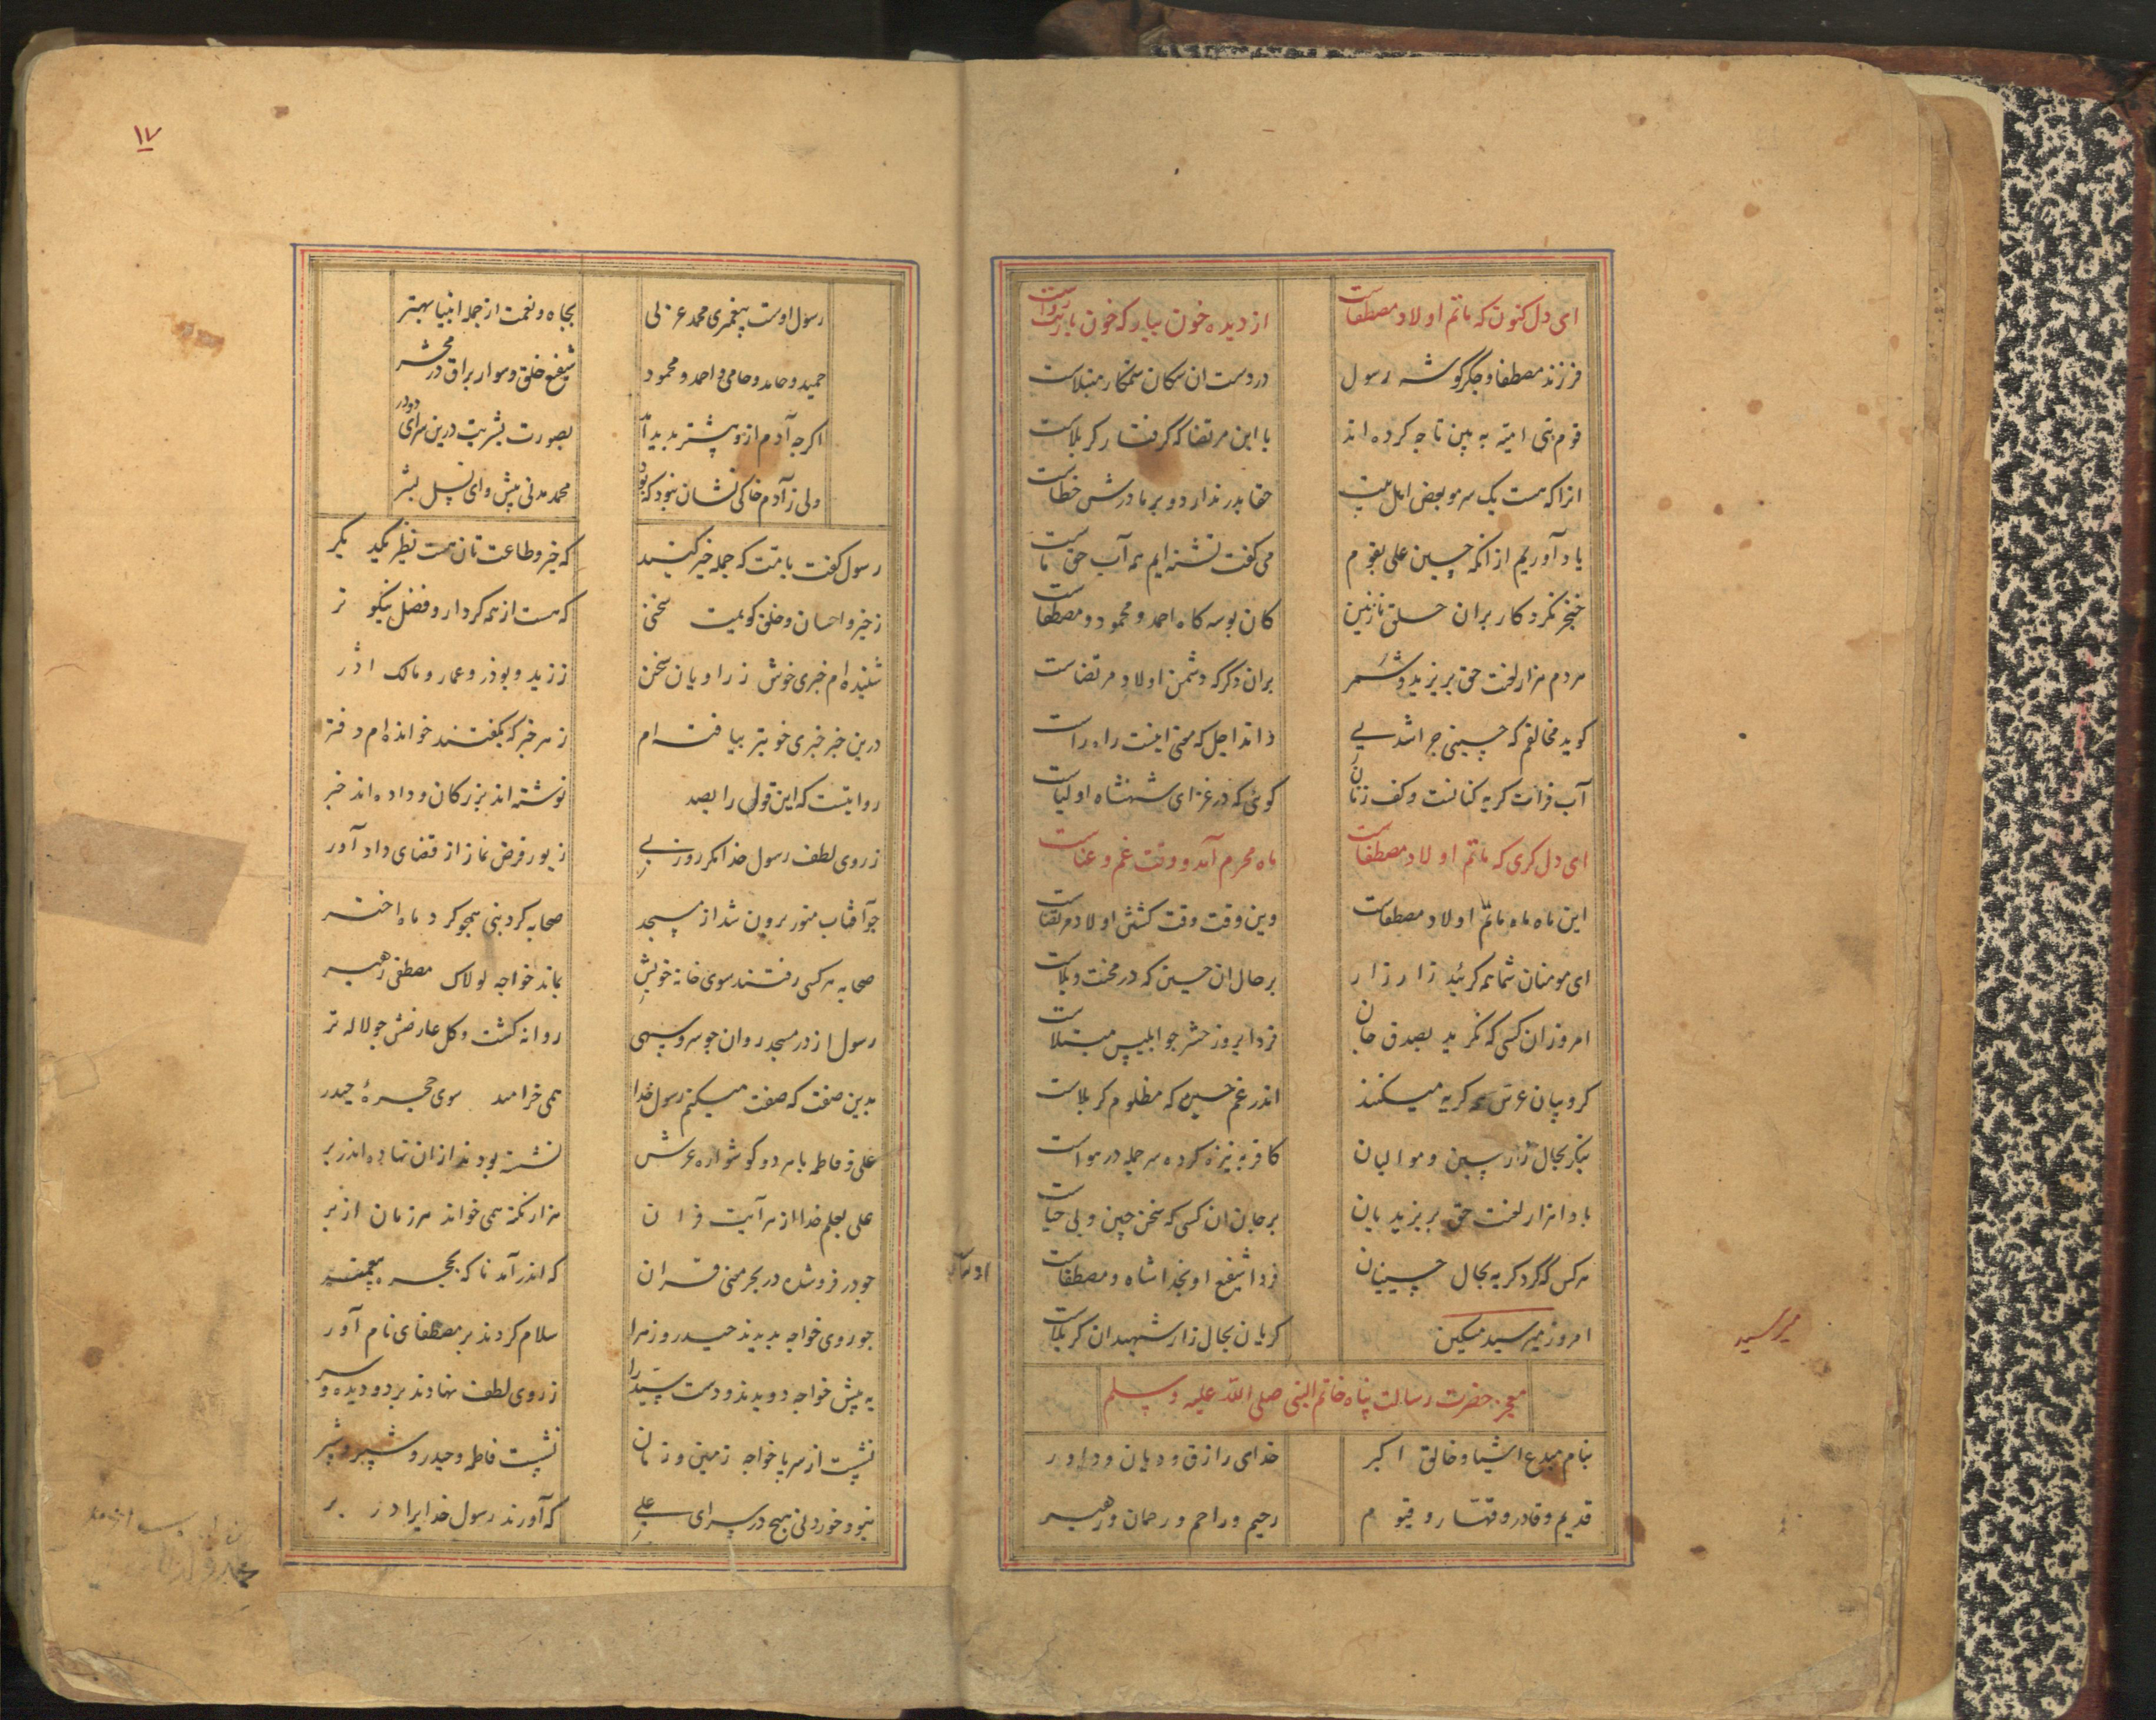 ای دل کنون که ماتم اولاد مصطفاست از دیده خون ببار که خون باریت رواست
فرزند مصطفا و جگرگوشه رسول در دست ان سکان ستمکار مبتلاست
قوم بنی امیه به بین تا چه کرده اند با ابن مرتضا که گرفتار کربلاست
انرا که هست یک سر مو بعض اهل بیت حقا پدر ندارد و بر مادرش خطاست
یاد آوریم از انکه حسین علی بقوم می گفت تشنه ایم همه آب حق ماست
خنجر نکرد کار بران حلق نازنین کان بوسه کاه احمد و محمود و مصطفاست
مردم هزار لعنت حق بر یزید و شمر بران دگر که دشمن اولاد مرتضاست
کوید مخالفم که حسینی چرا شدی داند اجل که معنی اینست راه راست
آب فرات کریه کنانست و کف زنان کوئی که در عزای شهنشاه اولیاست
ای دل کری که ماتم اولاد مصطفاست ماه محرم آمد و وقت غم و عناست
این ماه ماه ماتم اولاد مصطفاست وین وقت وقت کشتن اولاد مرتضاست
ای مومنان شما همه کریید زار زار بر حال ان حسین که در محنت و بلاست
امروز ان کسی که نکرید بصدق جان فردا بروز حشر چو ابلیس مبتلاست
کروبیان عرش همه کریه میکنند اندر غم حسین که مظلوم کربلاست
بنکر بحال زار حسین و موالیان کافر به نیزه کرده سر جمله در هواست
بادا هزار لعنت حق بر یزیدیان بر جان ان کسی که سخن چین و بی حیاست
هر کس که کرد کریه بحال حسینیان فردا شفیع او بخدا شاه و مصطفاست
امروز میر سید مسکین کریان بحال زار شهیدان کربلاست
میر سید
معجز حضرت رسالت پناه خاتم النبی صلی الله علیه و سلم
بنام مبدع اشیا و خالق اکبر خدای رازق و دیان و داور
قدیم و قادر و قهار و قیوم رحیم و راحم و رحمان و رهبر
۱۷
رسول اوست پیغمبری محمد عربی بجاه و نعمت از جمله انبیا بهتر
حمید و حامد و حامی و احمد و محمود شفیع خلق و سوار براق در محشر
اکرچه آدم ازو پیشتر پدید آمد بصورت بشریت درین سرای دو در
ولی ز آدم خاکی نشان نبود که بود محمد مدنی پیش وای نسل بشر
رسول کفت بامت که جمله خیر کنید که خیر و طاعت تان هست نظر کنید نکر
ز خیر و احسان و خلق کو نیست سخنی که هست از همه کردار و فضل نیکو تر
شنیده ام خبری خوش ز راویان سخن ز زید و بوذر و عمار و مالک اذر
درین خبر خبری خوبتر بیافته ام ز هر خبر که بکفتند خوانده ام دفتر
روایتست که این قول را بصد نوشته اند بزرکان و داده اند خبر
ز روی لطف رسول خدا مکر روزی نماز از قضای داد آور
چو آفتاب منور برون شد از مسجد صحابه کرد نبی همچو کرد ماه اختر
صحابه هر کسی رفتند سوی خانه خویش بماند خواجه لولاک مصطفی رهبر
رسول از در مسجد روان چو سرو سهی روانه کشت و کل عارضش چو لاله تر
بدین صفت که صفت میکنم رسول خدا همی خرامد سوی حجرهٔ حیدر
علی و فاطمه با هر دو کوشواره عرش نشسته بودند ازان نهاده اندر بر
علی بعلم خدا از هر آیت قران هزار نکته همی خواند هر زمان از بر
چو در فرو شده در بحر معنی قران که اندر آمد ناکه بحجره پیغمبر
چو روی خواجه بدیدند حیدر و زهرا سلام کردند بر مصطفای نام آور
به پیش خواجه دویدند و دست سید را ز روی لطف نهادند بر دو دیده و سر
نشست از سر پا خواجه زمین و زمان نشست فاطمه و حیدر و شبیر و شبر
نبود خوردنی هیچ در سرای علی که آورند رسول خدایرا در بر